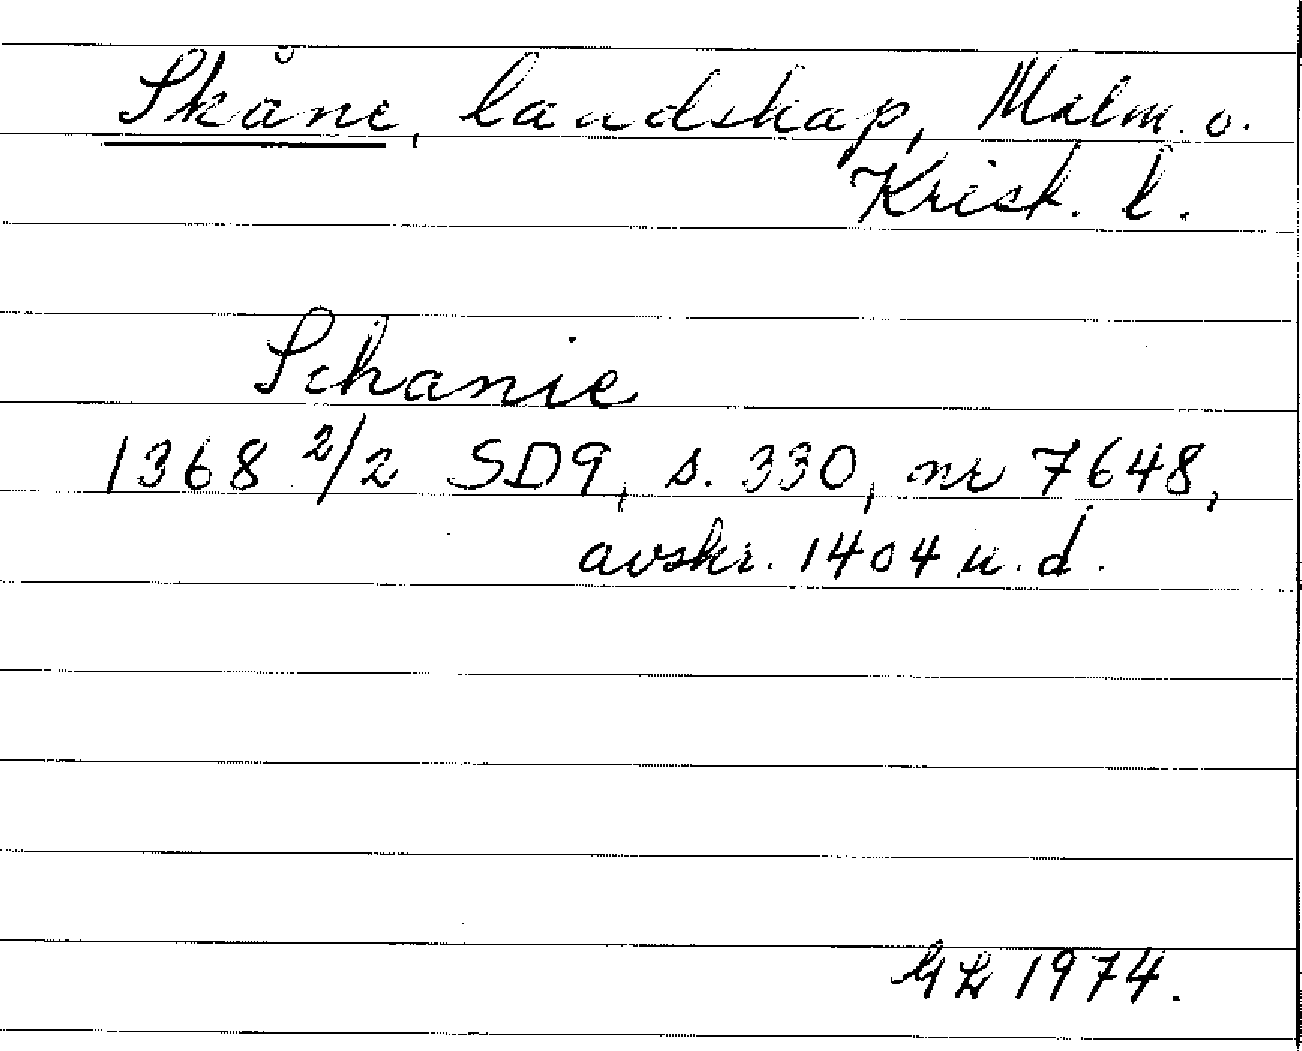 Skåne, landskap, Malm. o.
Krist. l.
Schanie
1368 2/2 SD9, s. 330, nr 7648,
avskr. 1404 u. d.
1974.